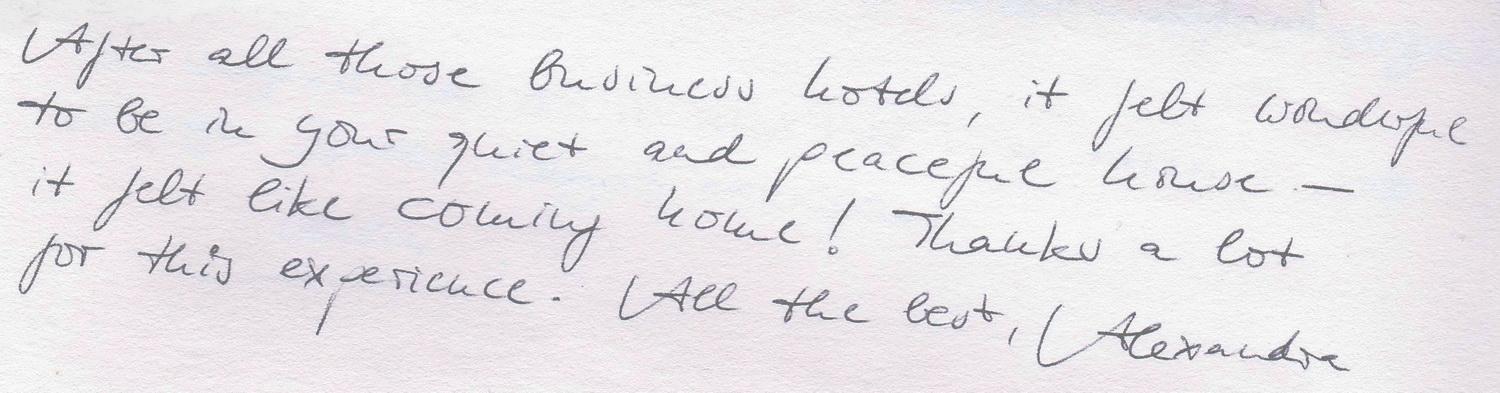 After all those business hotels, it felt wonderful
to be in your quiet and peaceful house —
it felt like coming home! Thanks a lot
for this experience. All the best, Alexandra